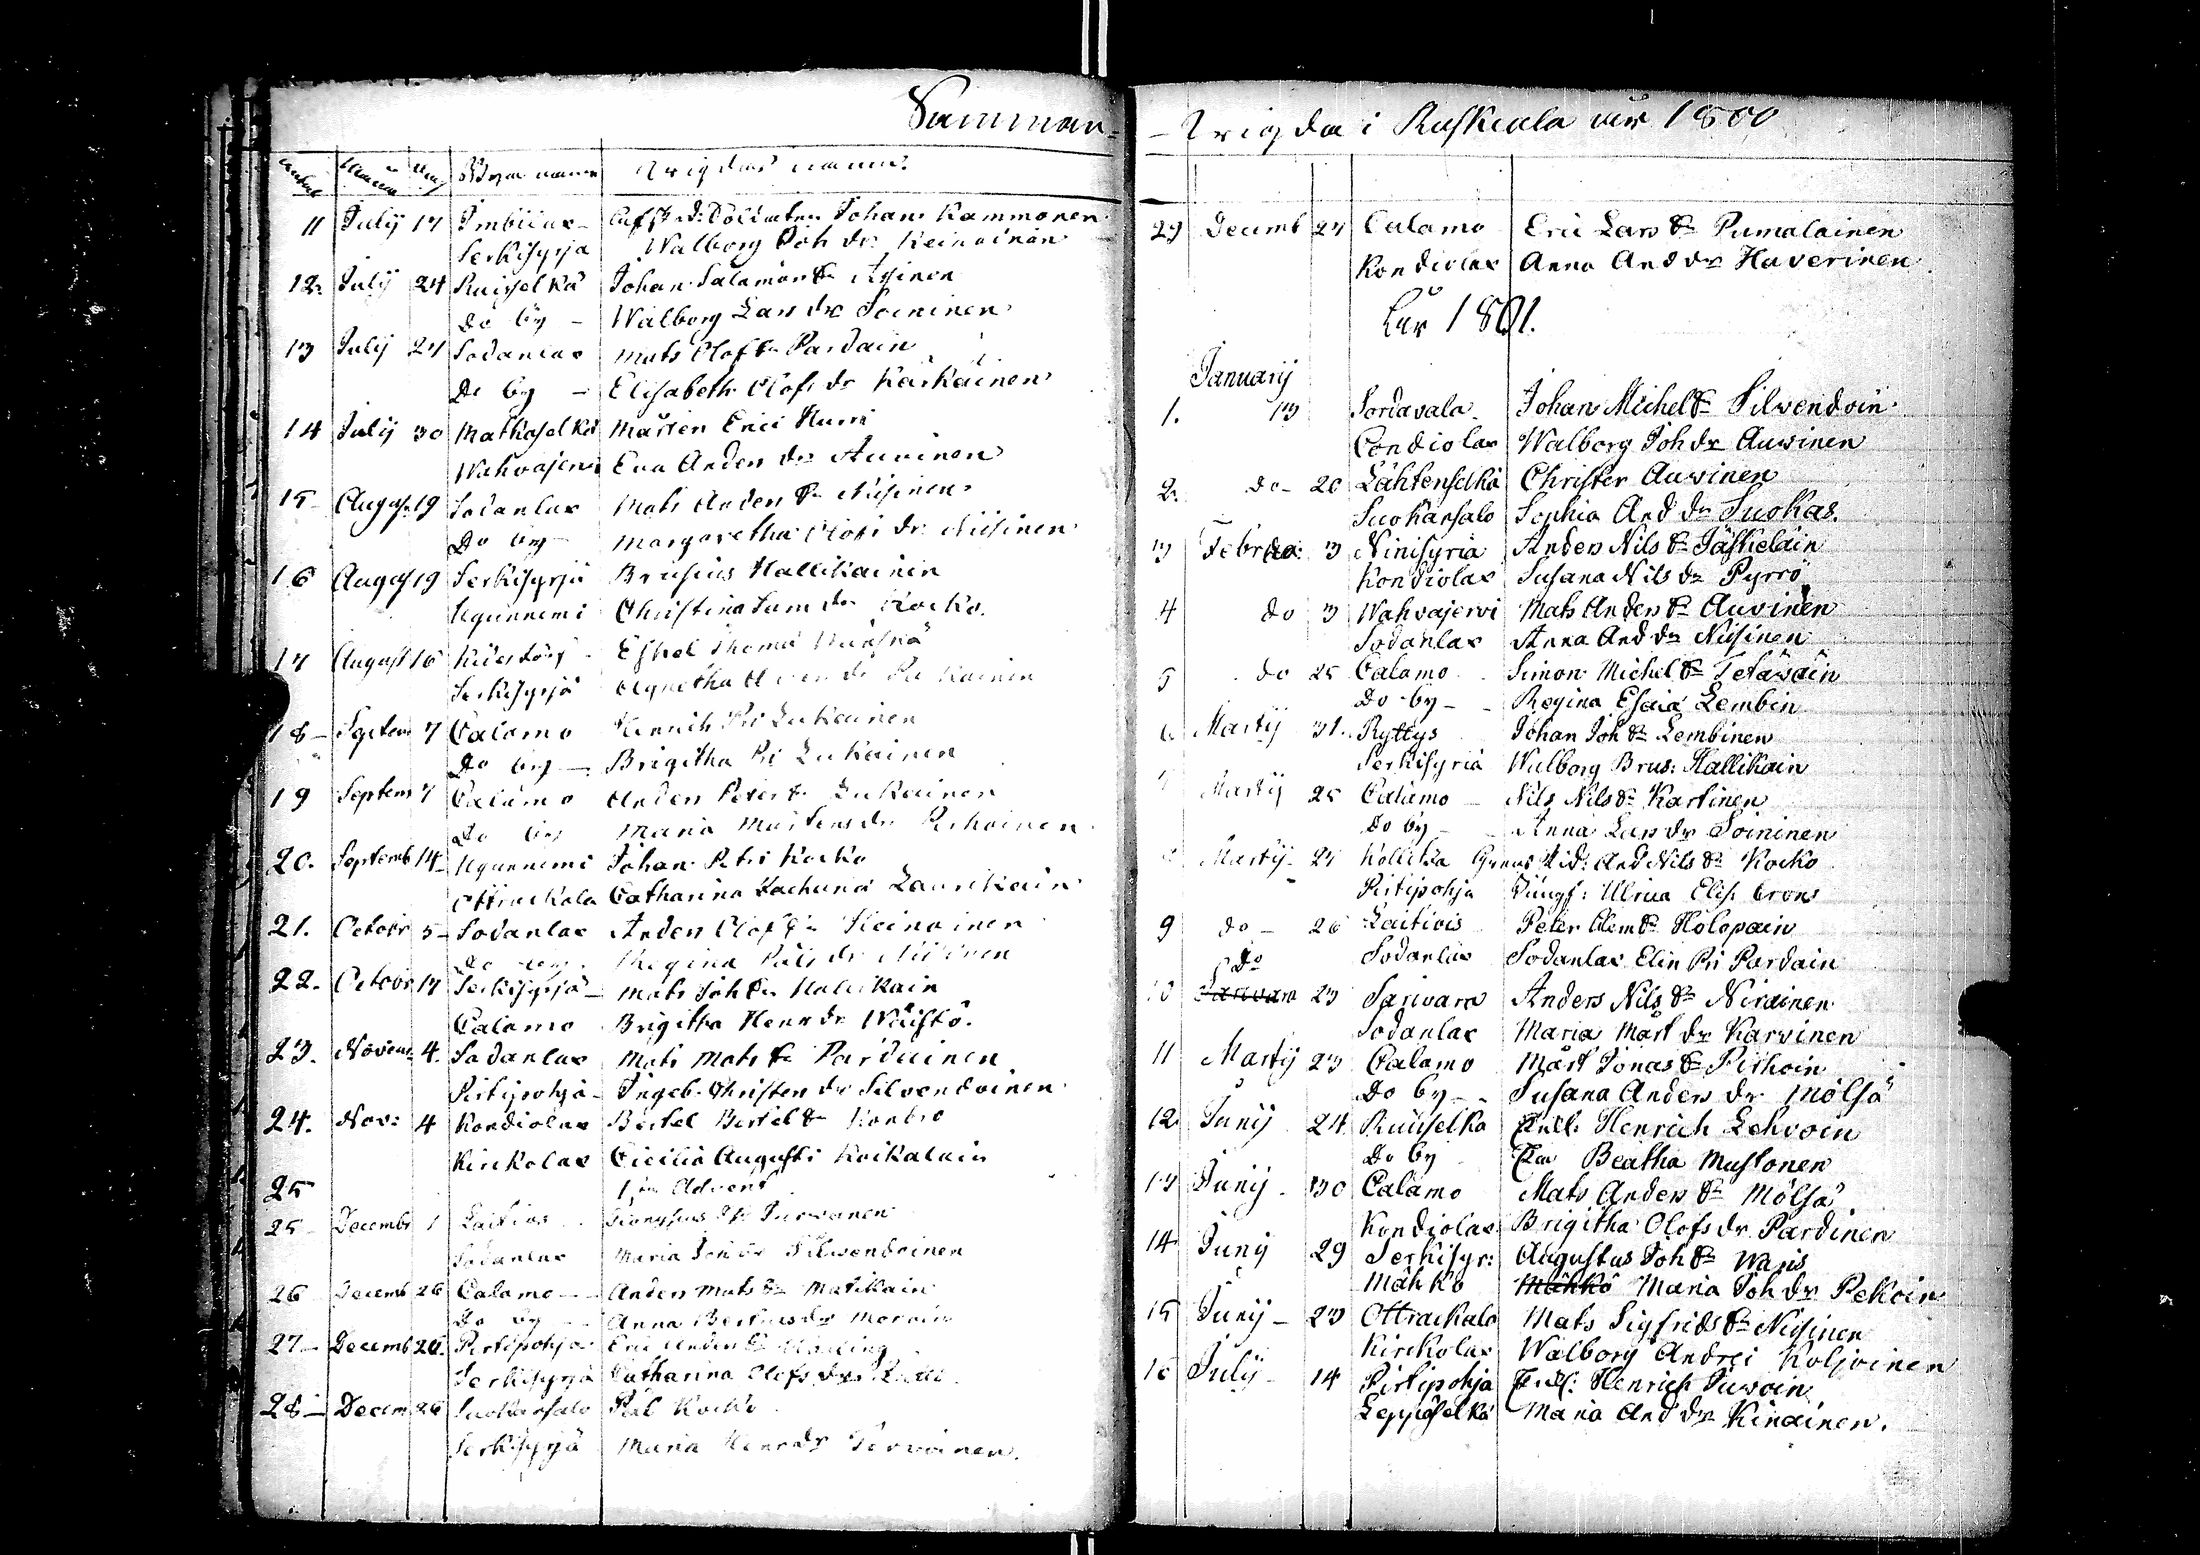 Samman-
antal Månad Dag Byarnes namn Wigdas namn
11 July 17 Imbilax Afsk:d: Soldaten Johan Kammonen
Serkisyrjä Walborg Joh dr Keinoinen
12. July 24 Ruisselkä Johan Salamon Sn Asinen
Do by - Walborg Lars dr Soininen
13 July 27 Sodanlax Mats Olof Sn Pardain
Do by - Elisabeth Olofs dr Karkainen
14 July 30 Matkaselkä Mårten Erici Hurri
Wahvajervi Eva Anders dr Auvinen
15 August 19 Sodanlax Mats Anders Sn Nüsinen
Do by - Margaretha Olofs dr Nüsinen
16 August 19 Serkisyrjä Brusius Hallikainen
Ugunnemi Christina Sam dr Kocko.
17 August 16 Eskel Thoma
Serkisyrjä Agnetha
18 - Septem 7 Calamo Henrich Pri Lukainen
Do by - Brigitha Pri Lukainen
19 Septem 7 Calamo Anders Peter Sn Lukainen
Do by Maria Mårtens dr Pehoinen
20. Septemb 14 Ugunnemi Johan Petri Kocko
Ottrackala Catharina Zachariæ Laurikain
21. Octobr 5 - Sodanlax Anders Olof Sn Heinoinen
Do by - Regina Påls dr Nüsinen
22. Octobr 17 Serkisyrjä - Mats Joh Sn Hallikain
Calamo Brigitha Henr dr Wäistö.
23. Novem 4. Sodanlax Mats Mats Sn Pardainen
Pirtipohja - Ingeb. Christer dr Silvendoinen
24. Nov: 4 Kondiolax Bertel Bertel Sn Kontro
Kirckolax Cicilia Augusti Koikalain
25 1sta Advent
25 - Decembr 1 Laitios Dionysius Turvanen
Sodanlax Maria Joh dr Silwendoinen
26 Decemb 26 Calamo - Anders Mats Sn Matikain
Do by - Anna Bertils dr
27 - Decemb 26. Pirtipohja Eric Anders Sn
Serkisyrjä Catharina Olofs dr
28 - Decem 26 Suokansalo Pål Kocko
Serkisyrjä Maria Henr dr Tervoinen.
- Wigda i Ruskiala år 1800
29 Decemb 27 Calamo Eric Lars Sn Pumalainen
Kondiolax Anna And dr Haverinen
År 1801.
January
1. 13 Sordavala Johan Michel Sn Silvendoin
Condiolax Walborg Joh dr Auvinen
2. do - 20 Lähtenselkä Christer Auvinen
Suokansalo Sophia And dr Suokas.
3 Februa: 3 Ninisyria Anders Nils Sn Jäskelain
Kondiolax Susana Nils dr Pyrrö
4 do 3 Wahvajervi Mats Anders Sn Auvinen
Sodanlax Anna And dr Nüsinen
5 do 25 Calamo Simon Michel Sn Tetäwäin
Do by - Regina Esaiæ Lembin
6 Martij 31. Ryttys Johan Joh Sn Lembinen
Serkisyria Walborg Brus: Hallikain
Martij 25 Calamo - Nils Nils Sn Kartinen
Do by - Anna Lars dr Soininen
Martij - 27 And Nils Sn Kocko
Pirtipohja Jungf: Ulrica Elis.
9 do - 26 Laitiois Peter Clem Sn Holopain
Do Sodanlax Sodanlax Elin Pri Pardain
10 Sarivara 23 Sarivara Anders Nils Sn Nirainen
Sodanlax Maria Mårt dr Karvinen
11 Martij 23 Calamo Mårt Jonas Sn Pithoin
Do by - - Susana Anders dr Mölsä
12 Junij 24 Ruiselka Henrich Lehvoin
Do by Beatha Mustonen
13 Junij - 30 Calamo Mats Anders Sn Mölsä
Kondiolax Brigitha Olofs dr Pardinen
14 Junij 29 Serkisyr: Augustus Joh Sn Wanis
Mähkö Mähkö Maria Joh dr Pekoin
15 Junij - 23 Ottrackala Mats Sigfrids Sn Nüsinen
Kirckolax Walborg Andrei Koljoinen
16 July - 14 Pirtipohja Henrich Juvoin
Leppäselkä Maria And dr Kinainen.